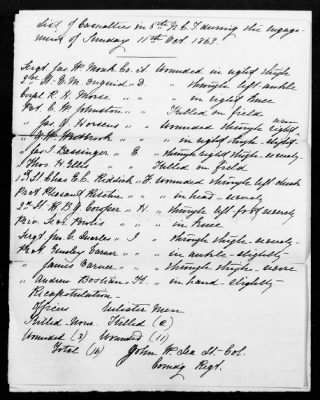 List of Casualties in 5th N.C.T. during the engage-
ment of Sunday 11th Oct 1863.
Sergt Jas W. Monk Co. A Wounded in right thigh
W. C. M. " D. " through left ankle
Corpl R. H. Morse " " " in right knee
Pvt E. W. Johnston " " Killed on field
" Jas A. " " Wounded through right arm
" " " " in right thigh - slight
" Jas L. Bassinger " E. " through right thigh - severely
" Thos H. Ellis " " Killed on field
1st Lt Chas E. C. Riddick " F. Wounded through left cheek
Pvt Pleasant " " " in head - severely
2d Lt H. B. J. Cowper " H. " through left foot severely
Pvt " " " in knee
Sergt Jno. C. Quarles " I " through thigh - severely -
Pvt Carver " " " in ankle - slightly
" James Carver " " " through thigh - severe
" Andrew " K. " in hand - slightly
Recapitulation -
Officers Enlisted Men
Killed - None - Killed (2)
Wounded (3) Wounded (11)
Total (16) John W. Lea Lt. Col.
Comdg Regt.